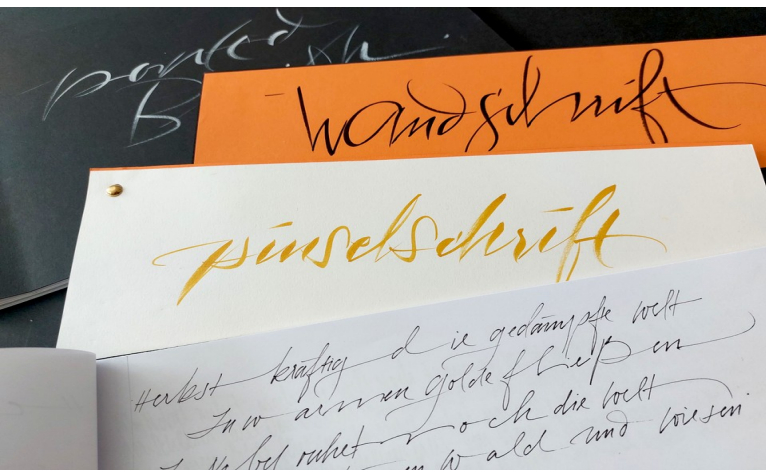 handschrift
pinselschrift
Herbst kräftig die gedämpfte welt
In w armen Golde fließen
Nebel ruhet noch die welt
wald und wiesen